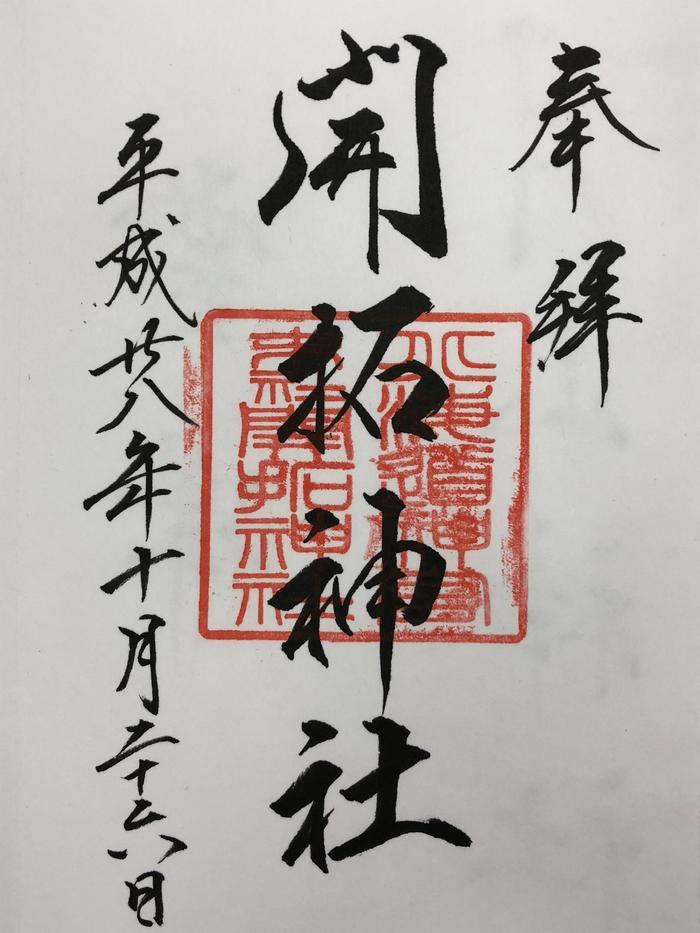 奉拝
開拓神社
北海道神宮
末社開拓神社
平成廿八年十月二十六日